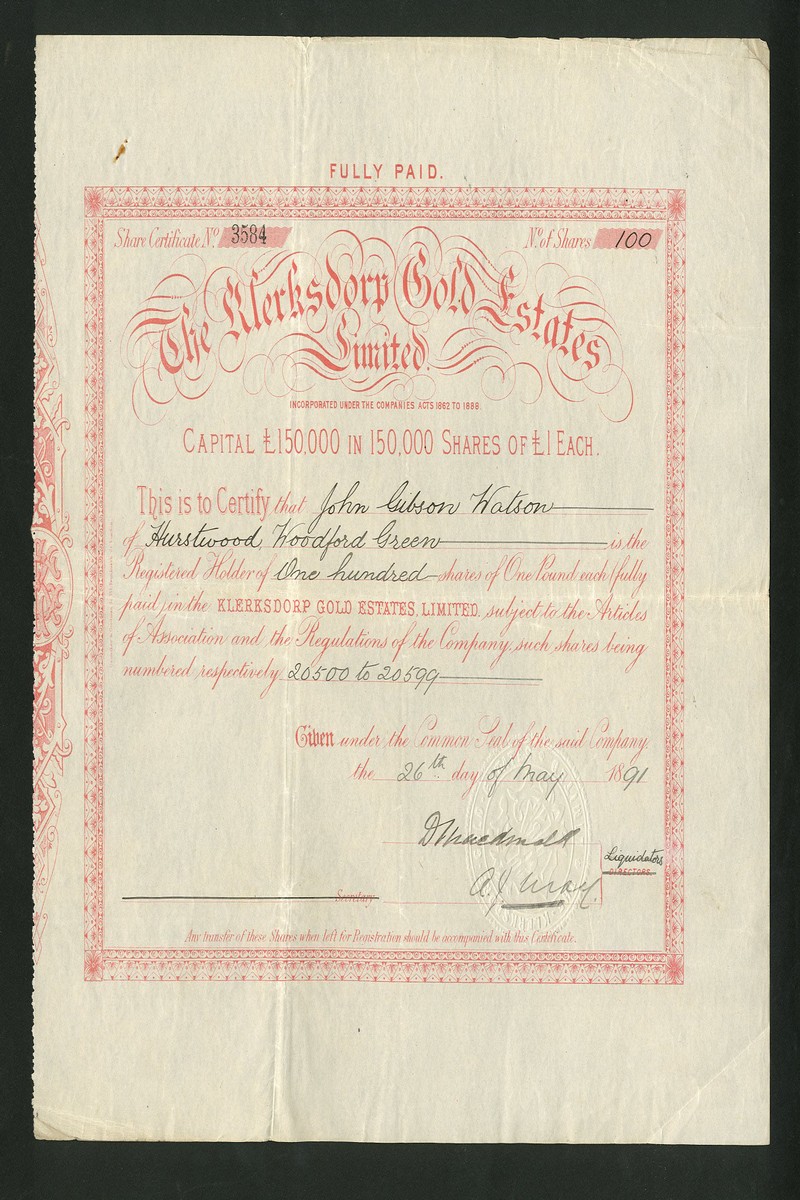 FULLY PAID.
Share Certificate No. 3584 No. of Shares 100
The Klerksdorp Gold Estates
Limited.
INCORPORATED UNDER THE COMPANIES ACTS 1862 TO 1888.
CAPITAL £150,000 IN 150,000 SHARES OF £1 EACH.
This is to Certify that John Gibson Watson
of Hurstwood, Woodford Green is the
Registered Holder of One hundred shares of One Pound each (fully
paid) in the KLERKSDORP GOLD ESTATES, LIMITED, subject to the Articles
of Association and the Regulations of the Company, such shares being
numbered respectively 20500 to 20599
Given under the Common Seal of the said Company,
the 26th day of May 1891
D Macdonald
Liquidators
DIRECTORS
A. J.
Secretary
Any transfer of these Shares when left for Registration should be accompanied with this Certificate.